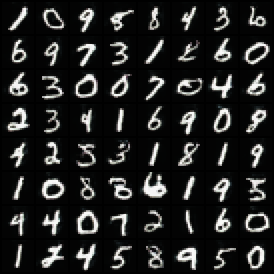 1 0 9 5 8 4 3 6
6 9 7 3 1 2 6 0
6 3 0 0 7 0 4 6
2 3 4 1 6 9 0 8
4 2 5 3 1 8 1 9
1 0 8 3 6 1 9 5
4 4 0 7 2 1 6 0
1 2 4 5 8 9 5 0